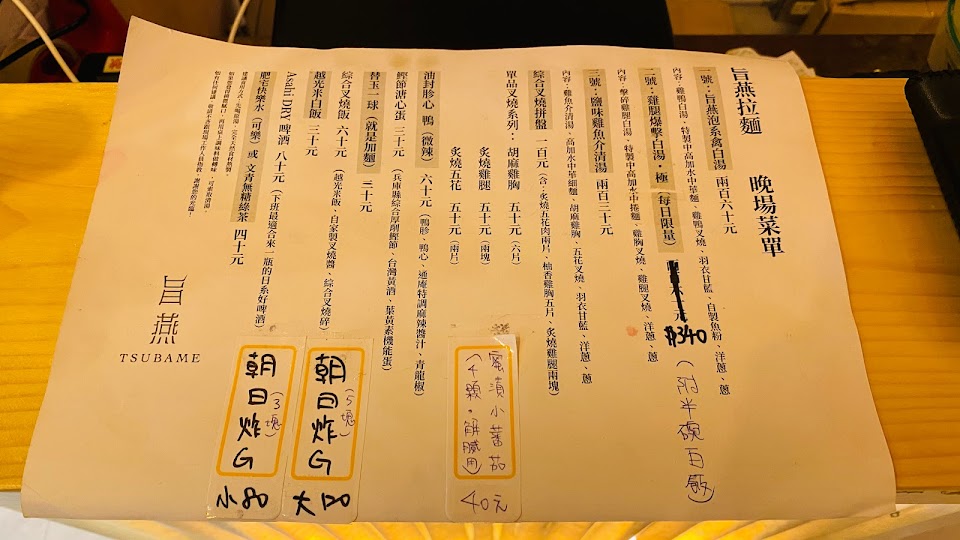 旨燕拉麵 晚場菜單
一號:旨燕泡系禽白湯 兩百六十元
內容:雞鴨白湯、特製中高加水中華麵、雞鴨叉燒、羽衣甘藍、自製魚粉、洋蔥、蔥
二號:雞腿爆擊白湯・極(每日限量) $340(附半碗白飯)
內容:一擊碎雞腿白湯、特製中高加水中捲麵、雞胸叉燒、雞腿叉燒、洋蔥、蔥
三號:鹽味雞魚介清湯 兩百三十元
內容:雞魚介清湯、高加水中華細麵、胡麻雞胸、五花叉燒、羽衣甘藍、洋蔥、蔥
綜合叉燒拼盤 一百元(含:炙燒五花肉兩片、柚香雞胸五片、炙燒雞腿兩塊)
單品叉燒系列: 胡麻雞胸 五十元(六片)
炙燒雞腿 五十元(兩塊)
炙燒五花 五十元(兩片)
蜜漬小蕃茄(4顆・解膩用) 40元
油封胗心 鴨(微辣) 六十元(鴨胗、鴨心、通庵特調麻辣醬汁、青龍椒)
鰹節溏心蛋 三十元(兵庫縣綜合厚削鰹節、台灣黃酒、葉黃素機能蛋)
替玉一球(就是加麵) 三十元
綜合叉燒飯 六十元(越光米飯、自家製叉燒醬、綜合叉燒碎)
越光米白飯 三十元
朝日炸G(5塊) 大120
Asahi DRY 啤酒 八十元(下班最適合來一瓶的日系好啤酒)
肥宅快樂水(可樂)或 文青無糖綠茶 四十元
朝日炸G(3塊) 小80
旨燕
TSUBAME